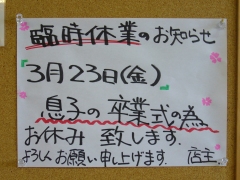 臨時休業のお知らせ
3月23日(金)
息子の卒業式の為
お休み致します.
よろしくお願い申し上げます. 店主